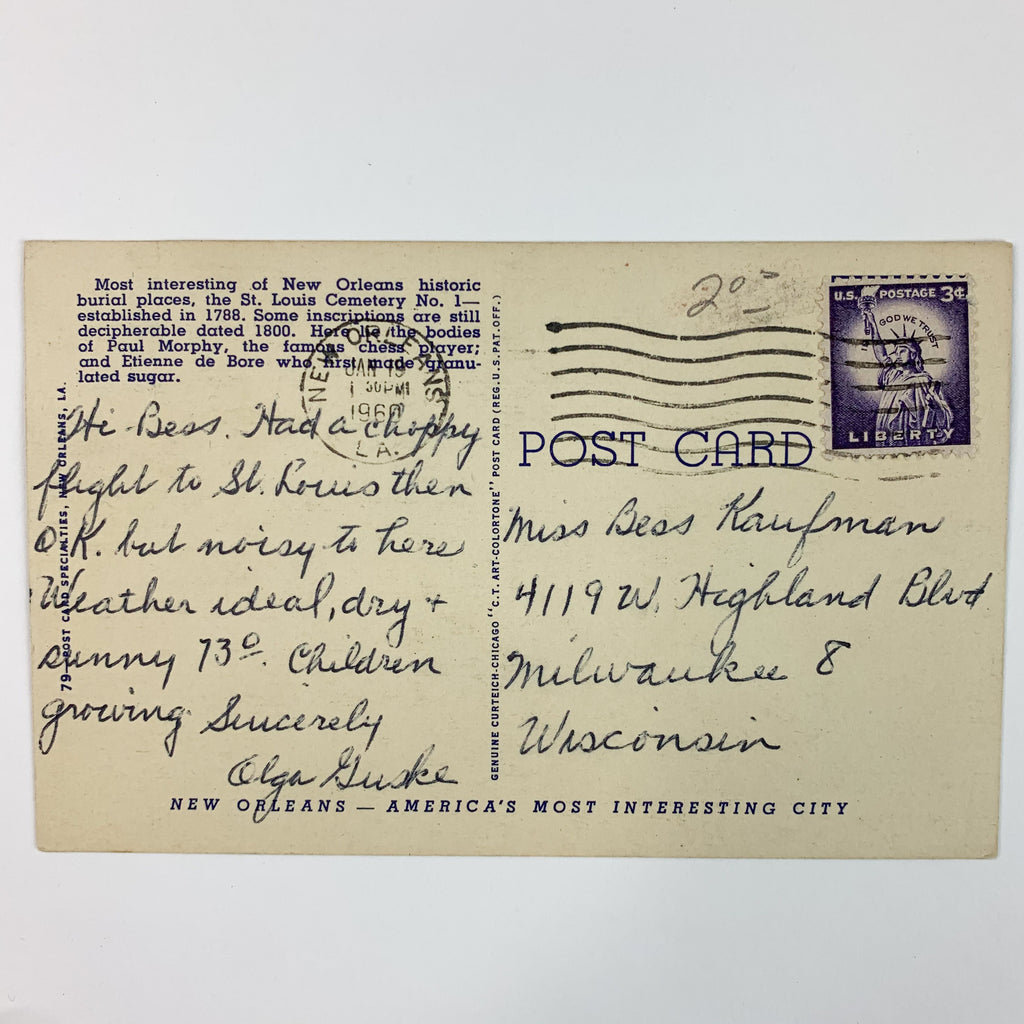 Most interesting of New Orleans historic
burial places, the St. Louis Cemetery No. 1—
established in 1788. Some inscriptions are still
decipherable dated 1800. Here lie the bodies
of Paul Morphy, the famous chess player;
and Etienne de Bore who first made granu-
lated sugar.
NEW ORLEANS
JAN 19
PM
1960
LA.
Hi Bess. Had a choppy
flight to St. Louis then
O.K. but noisy to here
Weather ideal, dry +
sunny 73°. Children
growing. Sincerely
Olga Guske
79—POST CARD SPECIALTIES, NEW ORLEANS, LA.
GENUINE CURTEICH-CHICAGO "C.T. ART-COLORTONE" POST CARD (REG. U.S. PAT. OFF.)
20
U.S. POSTAGE 3¢
IN GOD WE TRUST
LIBERTY
POST CARD
Miss Bess Kaufman
4119 W. Highland Blvd
Milwaukee 8
Wisconsin
NEW ORLEANS — AMERICA'S MOST INTERESTING CITY